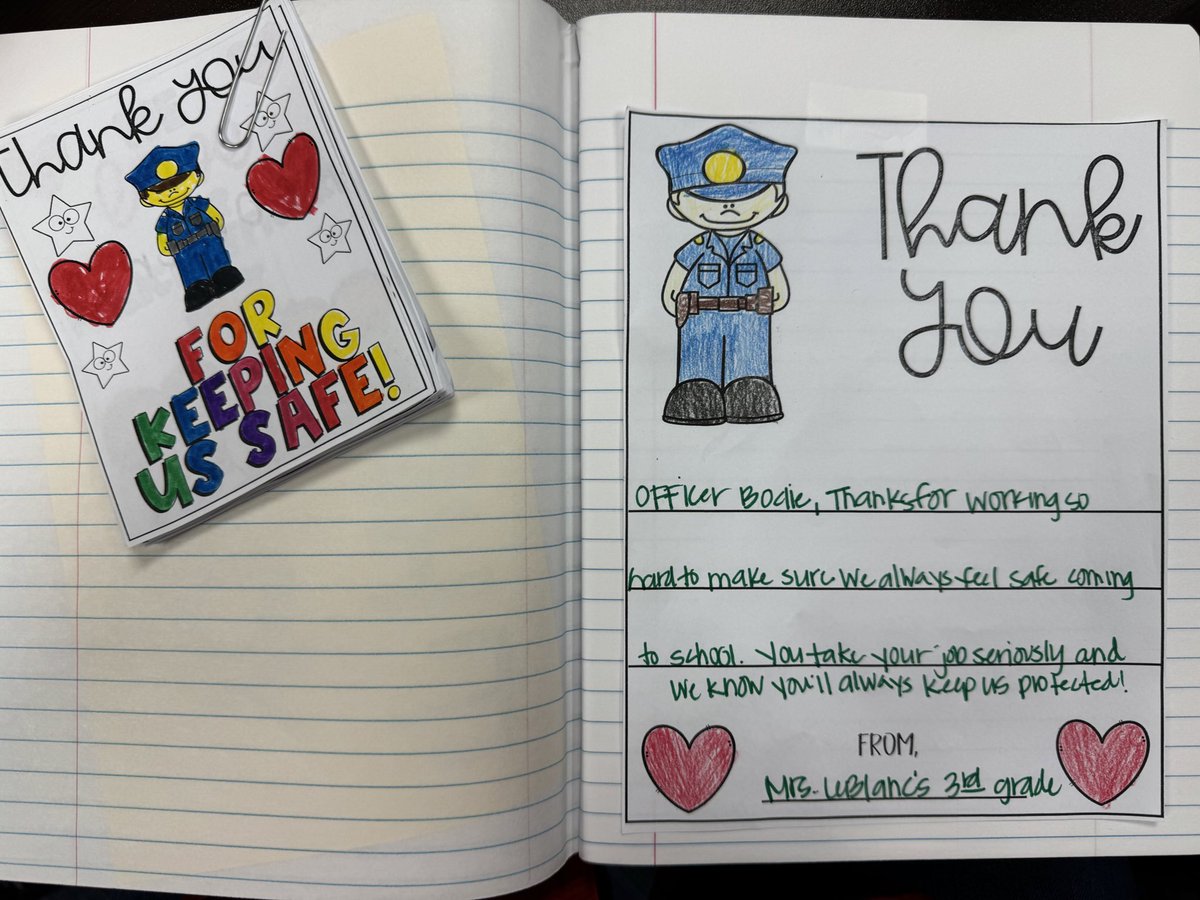 Thank you
FOR
KEEPING
US SAFE!
Thank
you
Officer Bodie, Thanks for working so
hard to make sure we always feel safe coming
to school. You take your job seriously and
we know you'll always keep us protected!
FROM,
Mrs. LeBlanc's 3rd grade